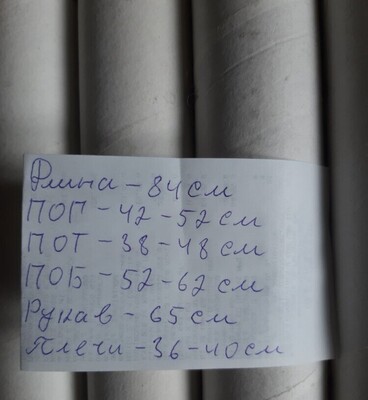 Длина - 84 см
ПОГ - 42 - 52 см
ПОТ - 38 - 48 см
ПОБ - 52 - 62 см
Рукав - 65 см
Плечи - 36 - 40 см